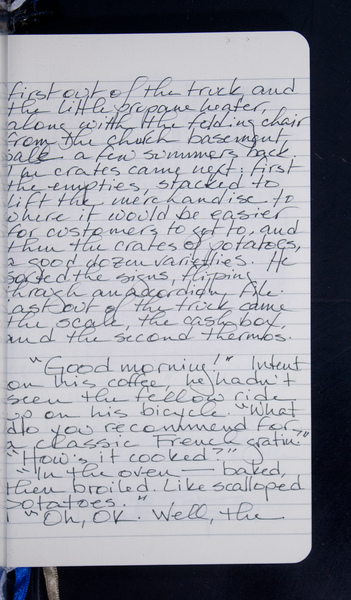 first out of the truck, and
the little propane heater,
along with the folding chair
from the church basement
sale a few summers back.
The crates came next: first
the empties, stacked to
lift the merchandise to
where it would be easier
for customers to get to, and
then the crates of potatoes,
a good dozen varieties. He
sorted the signs, flipping
through an accordion file.
Last out of the truck came
the scale, the cashbox,
and the second thermos.
"Good morning!" Intent
on his coffee, he hadn't
seen the fellow ride
up on his bicycle. "What
do you recommend for
a classic French gratin?"
"How's it cooked?"
"In the oven — baked,
then broiled. Like scalloped
potatoes."
"Oh, OK. Well, the